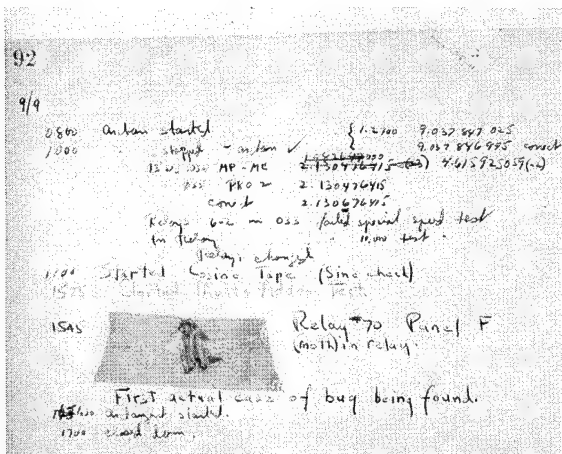 92
9/9
0800 antan started { 1.2700 9.037 847 025
1000 " stopped - antan ✓ 9.037 846 995 correct
MP - MC 2.130476415 4.615925059(-2)
033 PRO 2 2.130476415
correct 2.130676415
Relays 6-2 in 033 failed special speed test
In relay " 10,000 test.
Relays changed
1100 Started Cosine Tape (Sine check)
1525 Started Multi Adder Test.
1545 Relay #70 Panel F
(moth) in relay.
First actual case of bug being found.
antangent started.
1700 closed down.